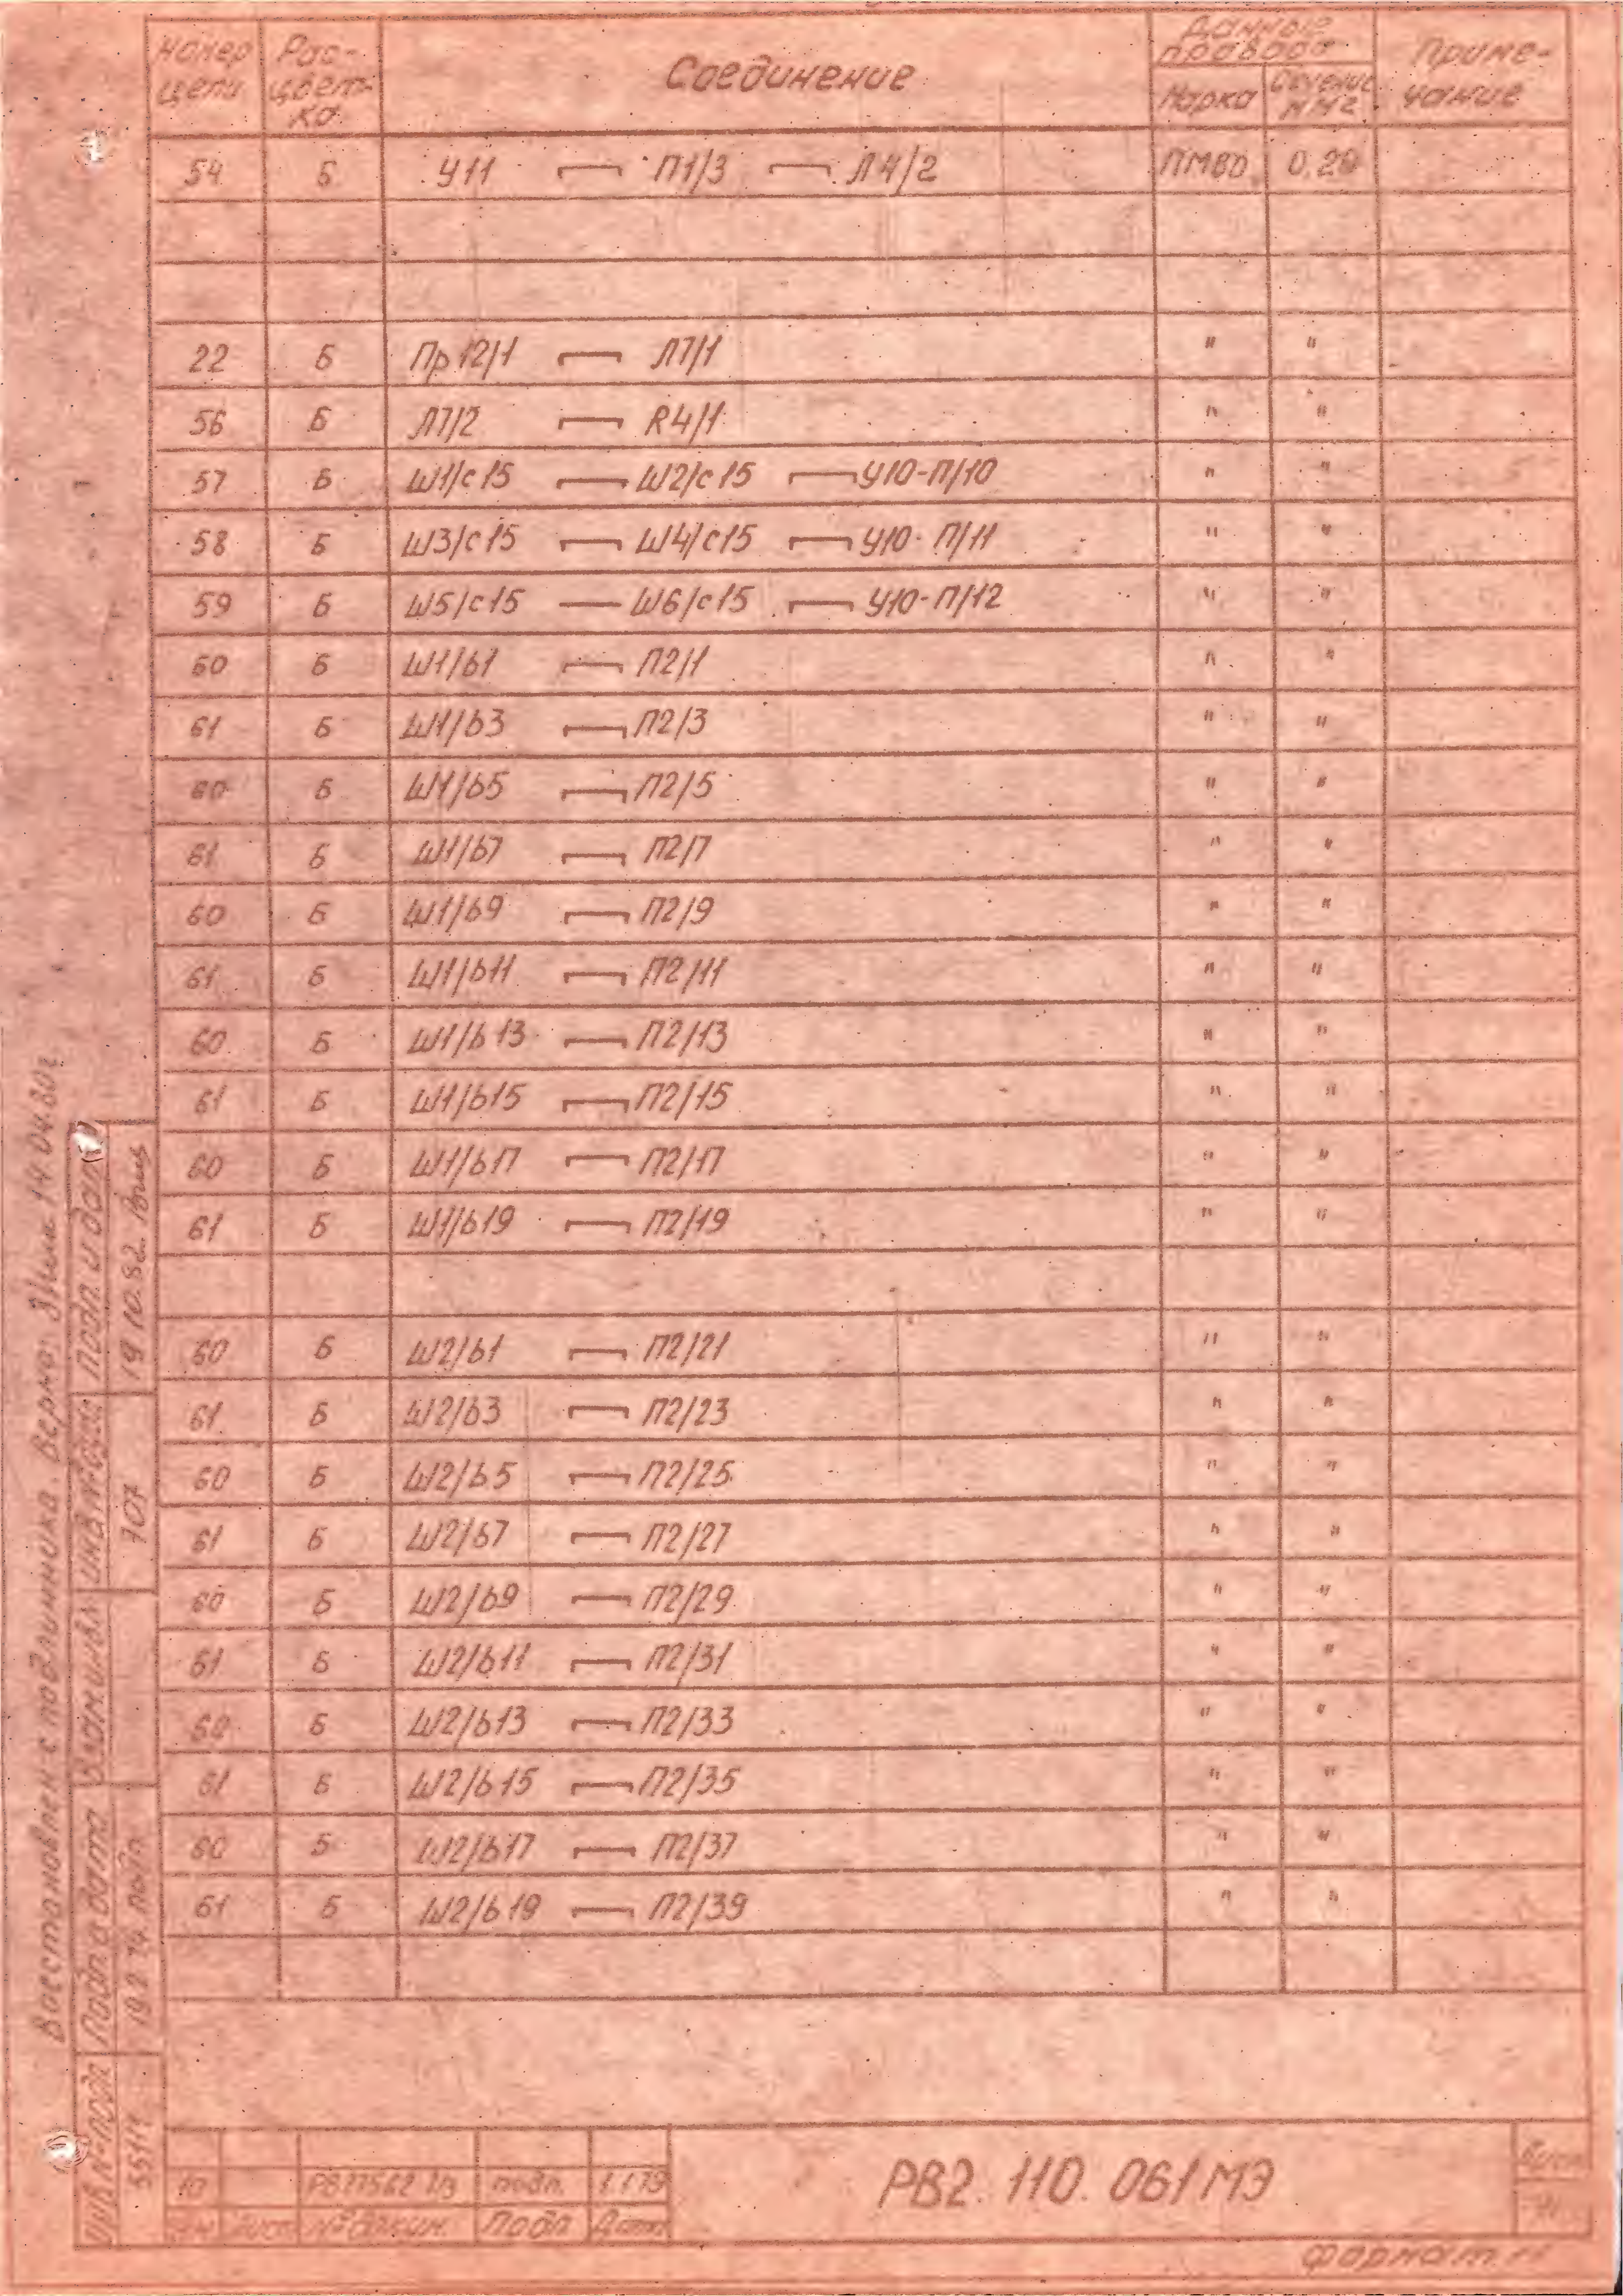 Номер цепи Рас-цвет-ка Соединение Данные провода Марка Сечение мм2 Приме-чание
54 Б У11 П1/3 Л4/2 ПМВО 0.20
22 Б Пр12/1 Л7/1 " "
56 Б Л7/2 R4/1 " "
57 Б Ш1/с15 Ш2/с15 У10-П/10 " "
58 Б Ш3/с15 Ш4/с15 У10-П/11 " "
59 Б Ш5/с15 — Ш6/с15 У10-П/12 " "
60 Б Ш1/b1 П2/1 " "
61 Б Ш1/b3 П2/3 " "
60 Б Ш1/b5 П2/5 " "
61 Б Ш1/b7 П2/7 " "
60 Б Ш1/b9 П2/9 " "
61 Б Ш1/b11 П2/11 " "
60 Б Ш1/b13 П2/13 " "
61 Б Ш1/b15 П2/15 " "
60 Б Ш1/b17 П2/17 " "
61 Б Ш1/b19 П2/19 " "
60 Б Ш2/b1 П2/21 " "
61 Б Ш2/b3 П2/23 " "
60 Б Ш2/b5 П2/25 " "
61 Б Ш2/b7 П2/27 " "
60 Б Ш2/b9 П2/29 " "
61 Б Ш2/b11 П2/31 " "
60 Б Ш2/b13 П2/33 " "
61 Б Ш2/b15 П2/35 " "
60 Б Ш2/b17 П2/37 " "
61 Б Ш2/b19 П2/39 " "
Восстановлен с подлинника. Верно: 14.04.80г
Подп. и дата 19.10.82.
Инв.№дубл 707
Взам.инв.№
Подп. и дата 19.2.74 подп.
Инв.№подл 5511
10 подп. 1.1.79
Изм Лист № докум. Подп Дата
РВ2.110.061МЭ
Лист
Формат 11